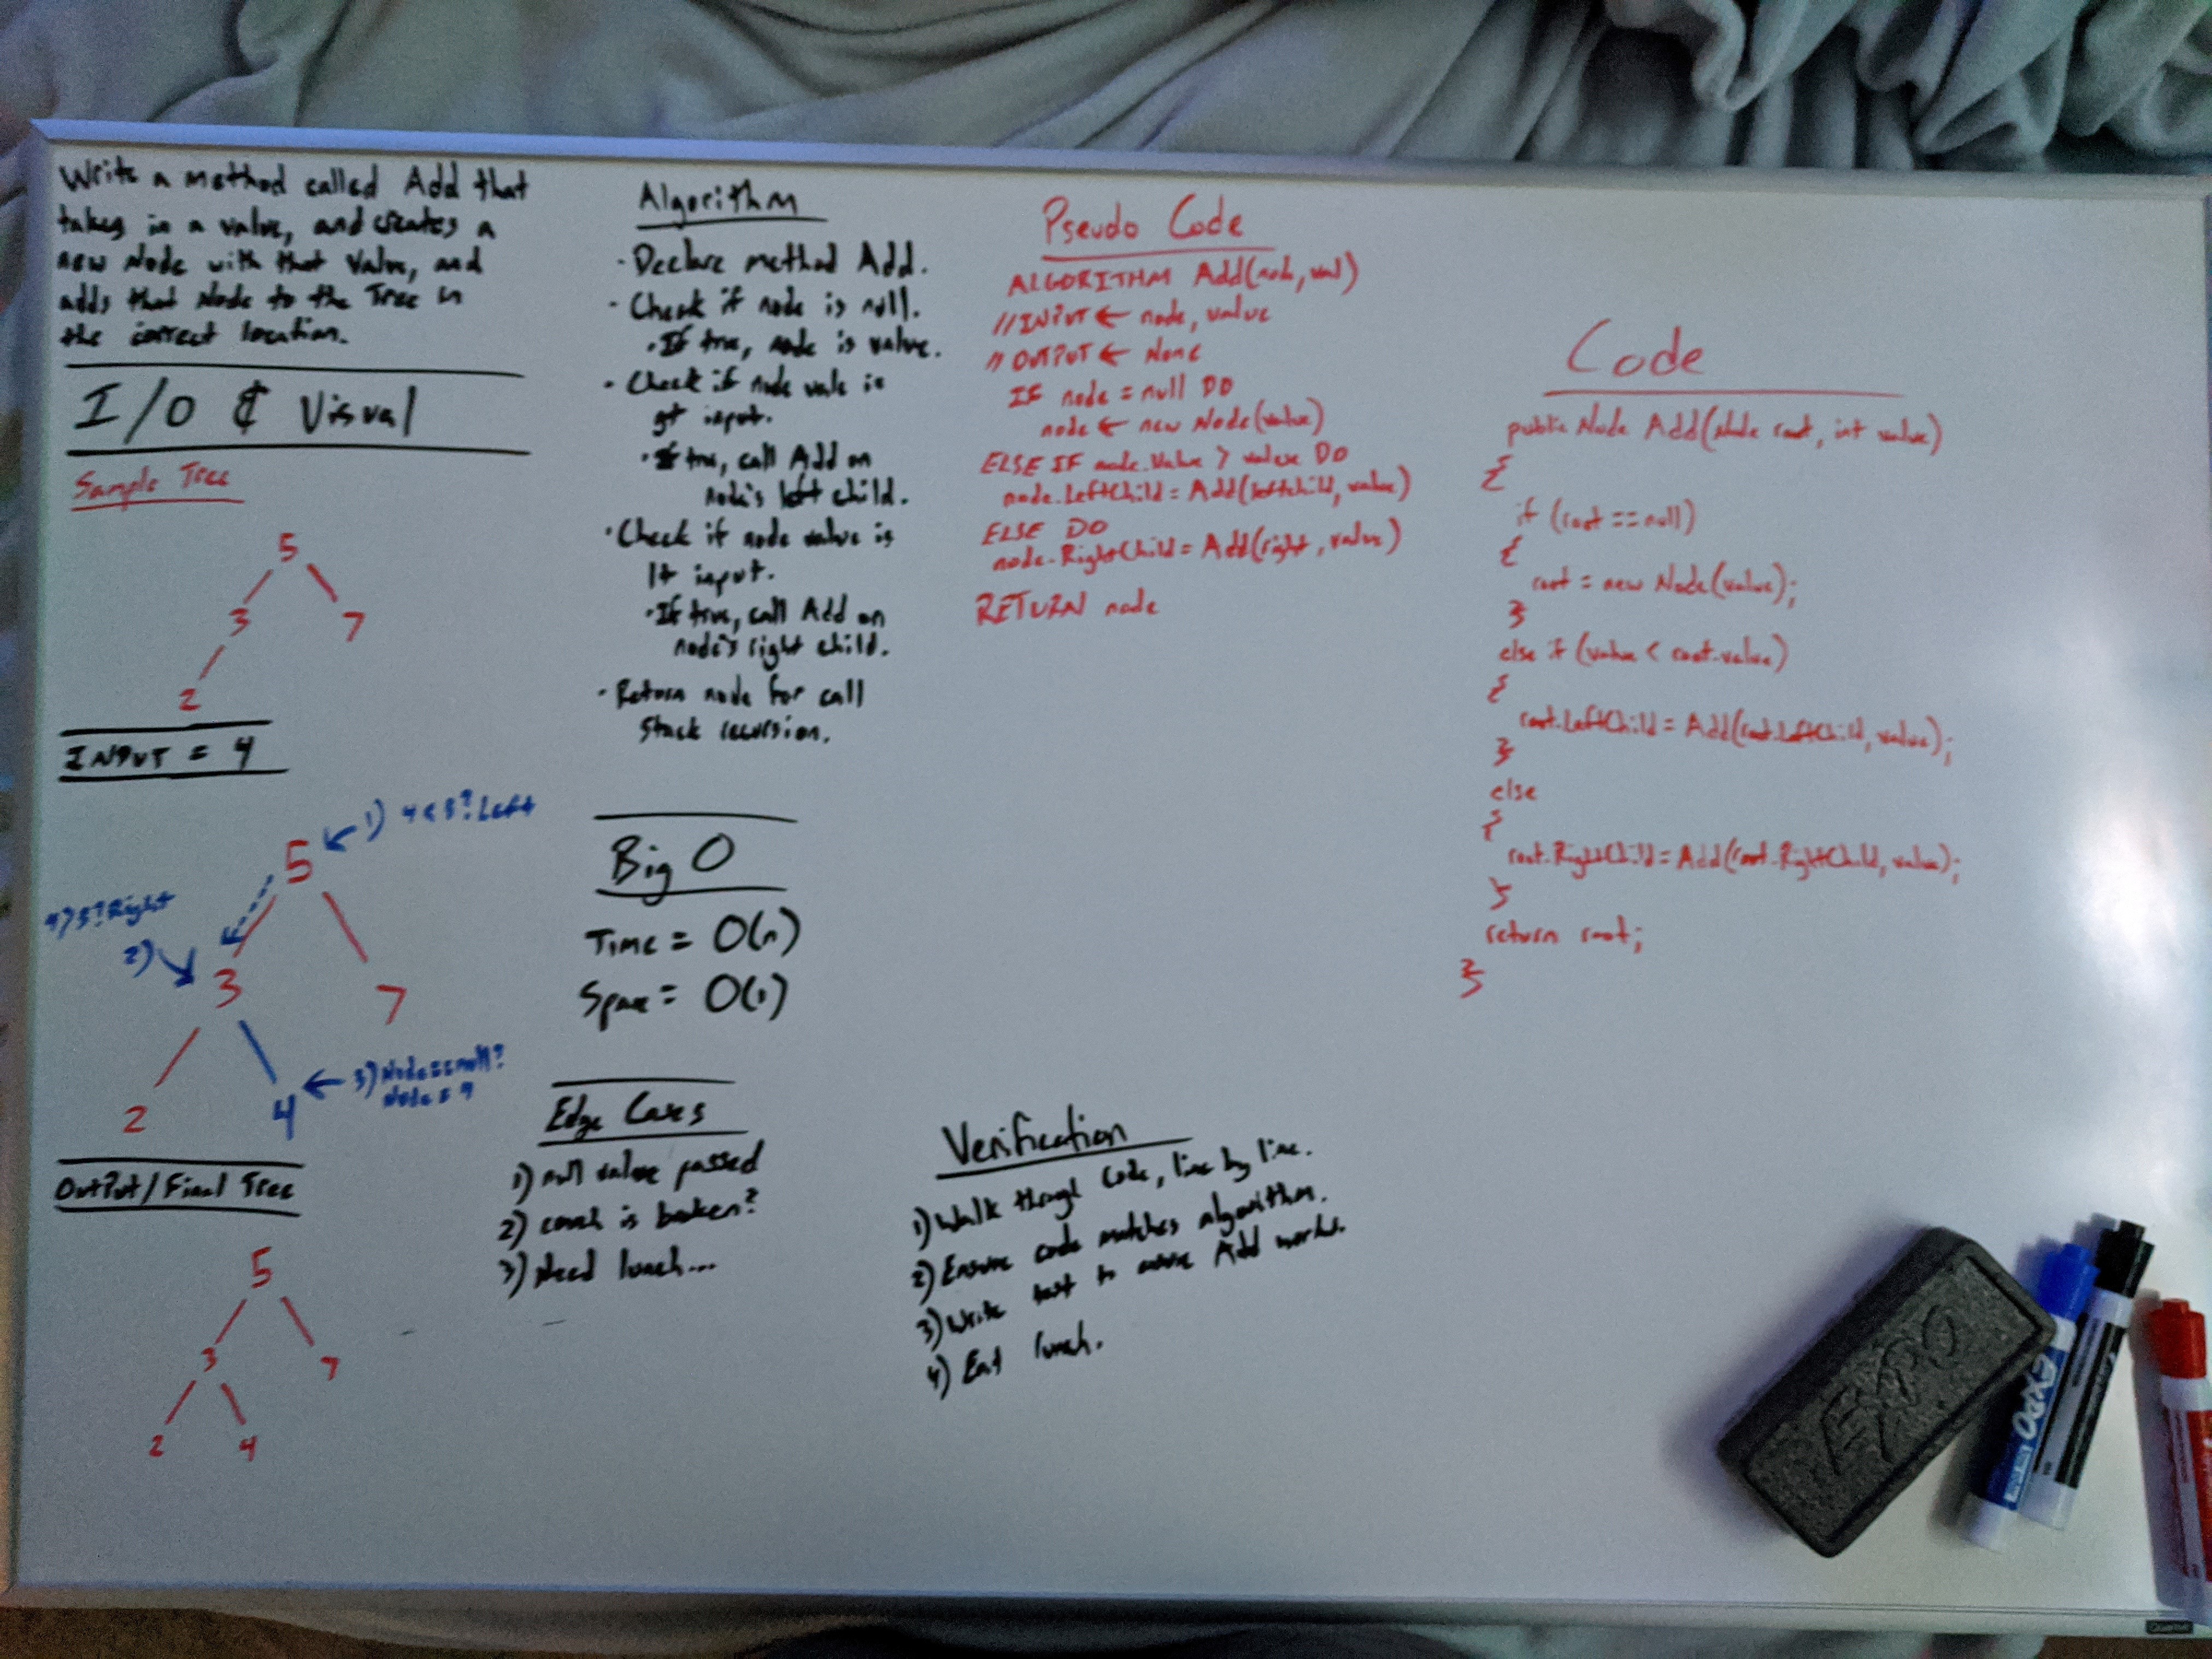 Write a method called Add that
takes in a value, and creates a
new Node with that Value, and
adds that Node to the Tree in
the correct location.
I/O & Visual
Sample Tree
5
3 7
2
INPUT = 4
1) 4 < 5? Left
5
4 > 3? Right
2)
3 7
3) Node == null?
Node = 4
2 4
OutPut/Final Tree
5
3 7
2 4
Algorithm
- Declare method Add.
- Check if node is null.
• If true, node is value.
• Check if node vale is
gt input.
• If true, call Add on
node's left child.
• Check if node value is
lt input.
• If true, call Add on
node's right child.
• Return node for call
stack recursion.
Big O
Time = O(n)
Space = O(1)
Edge Cases
1) null value passed
2) is broken?
3) Need lunch...
Pseudo Code
ALGORITHM Add(node, val)
//INPUT ← node, value
// OUTPUT ← None
IF node = null DO
node ← new Node(value)
ELSE IF node.Value > value DO
node.LeftChild = Add(leftchild, value)
ELSE DO
node.RightChild = Add(right, value)
RETURN node
Verification
1) Walk though Code, line by line.
2) Ensure code matches algorithm.
3) Write test to Add works.
4) Eat lunch.
Code
public Node Add(Node root, int value)
{
if (root == null)
{
root = new Node(value);
}
else if (value < root.value)
{
root.LeftChild = Add(root.LeftChild, value);
}
else
{
root.RightChild = Add(root.RightChild, value);
}
return root;
}
EXPO
EXPO
Quartet